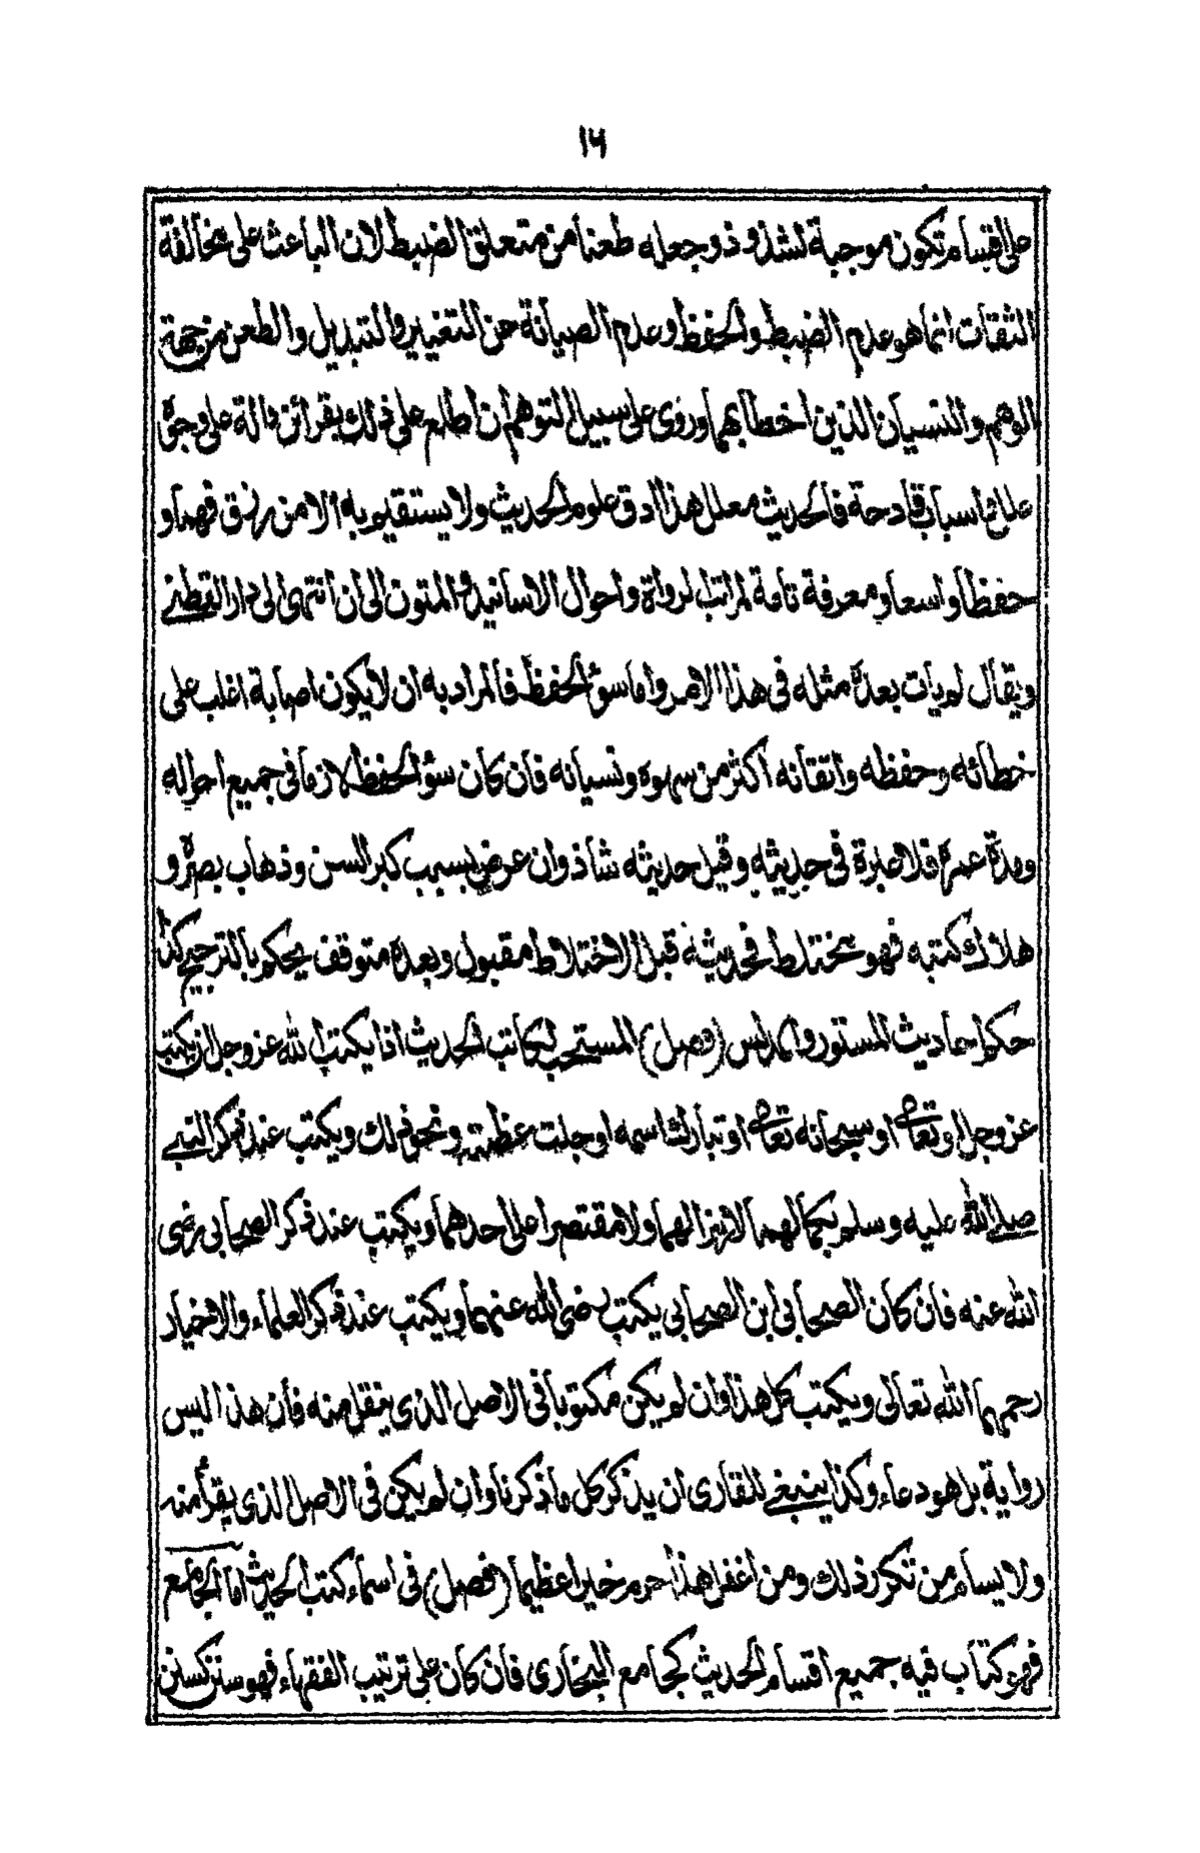 ١٦
على اقسام تكون موجبة لشذوذ وجعله طعنا من متعلق الضبط لان الباعث على مخالفة
الثقات انما هو عدم الضبط والحفظ وعدم الصيانة عن التغيير والتبديل والطعن من جهة
الوهم والنسيان الذين اخطأ بهما وروى على سبيل التوهم ان اطلع على ذلك بقرائن دالة على وجوه
علل واسباب قادحة فالحديث معلل هذا ادق علوم الحديث ولا يستقيم به الا من رزق فهما و
حفظا واسعا ومعرفة تامة لمراتب الرواة واحوال الاسانيد والمتون الى ان انتهى الى دار القطنے
ويقال لم يات بعده مثله فى هذا الامر واما سوء الحفظ فالمراد به ان لا يكون اصابة اغلب على
خطائه وحفظه واتقانه اكثر من سهوه ونسيانه فان كان سوء الحفظ لازما فى جميع احواله
ومدة عمره فلا عبرة فى حديثه وقيل حديثه شاذ وان عرض بسبب كبر السن وذهاب بصره و
هلاك كتبه فهو مختلط فحديثه قبل الاختلاط مقبول وبعده متوقف يحكم بالترجيح كذا
حكم احاديث المستور والمدلس (فصل) المستحب لكاتب الحديث اذا يكتب الله عزوجل ان يكتب
عزوجل او تعالى او سبحانه تعالى او تبارك اسمه او جلت عظمته ونحو ذلك ويكتب عند ذكر النبے
صلے الله عليه وسلم بكمالهما لا رمزا لهما ولا مقتصرا على احدهما ويكتب عند ذكر الصحابى رضى
الله عنه فان كان الصحابى ابن الصحابى يكتب رضى الله عنهما ويكتب عند ذكر العلماء والاخيار
رحمهم الله تعالى ويكتب كل هذا وان لم يكن مكتوبا فى الاصل الذى ينقل منه فان هذا ليس
رواية بل هو دعاء وكذا ينبغے للقارى ان يذكر كل ما ذكرنا وان لم يكن فى الاصل الذى يقرأ منه
ولا يسأم من تكرر ذلك ومن اغفل هذا حرم خيرا عظيما (فصل) فى اسماء كتب الحديث اما الجامع
فهو كتاب فيه جميع اقسام الحديث كجامع البخارى فان كان على ترتيب الفقهاء فهو سنن كسنن